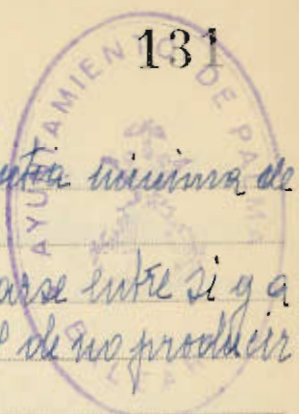 131
AYUNTAMIENTO DE PALMA
BALEARES
mínima de
arse entre si y a
de no producir